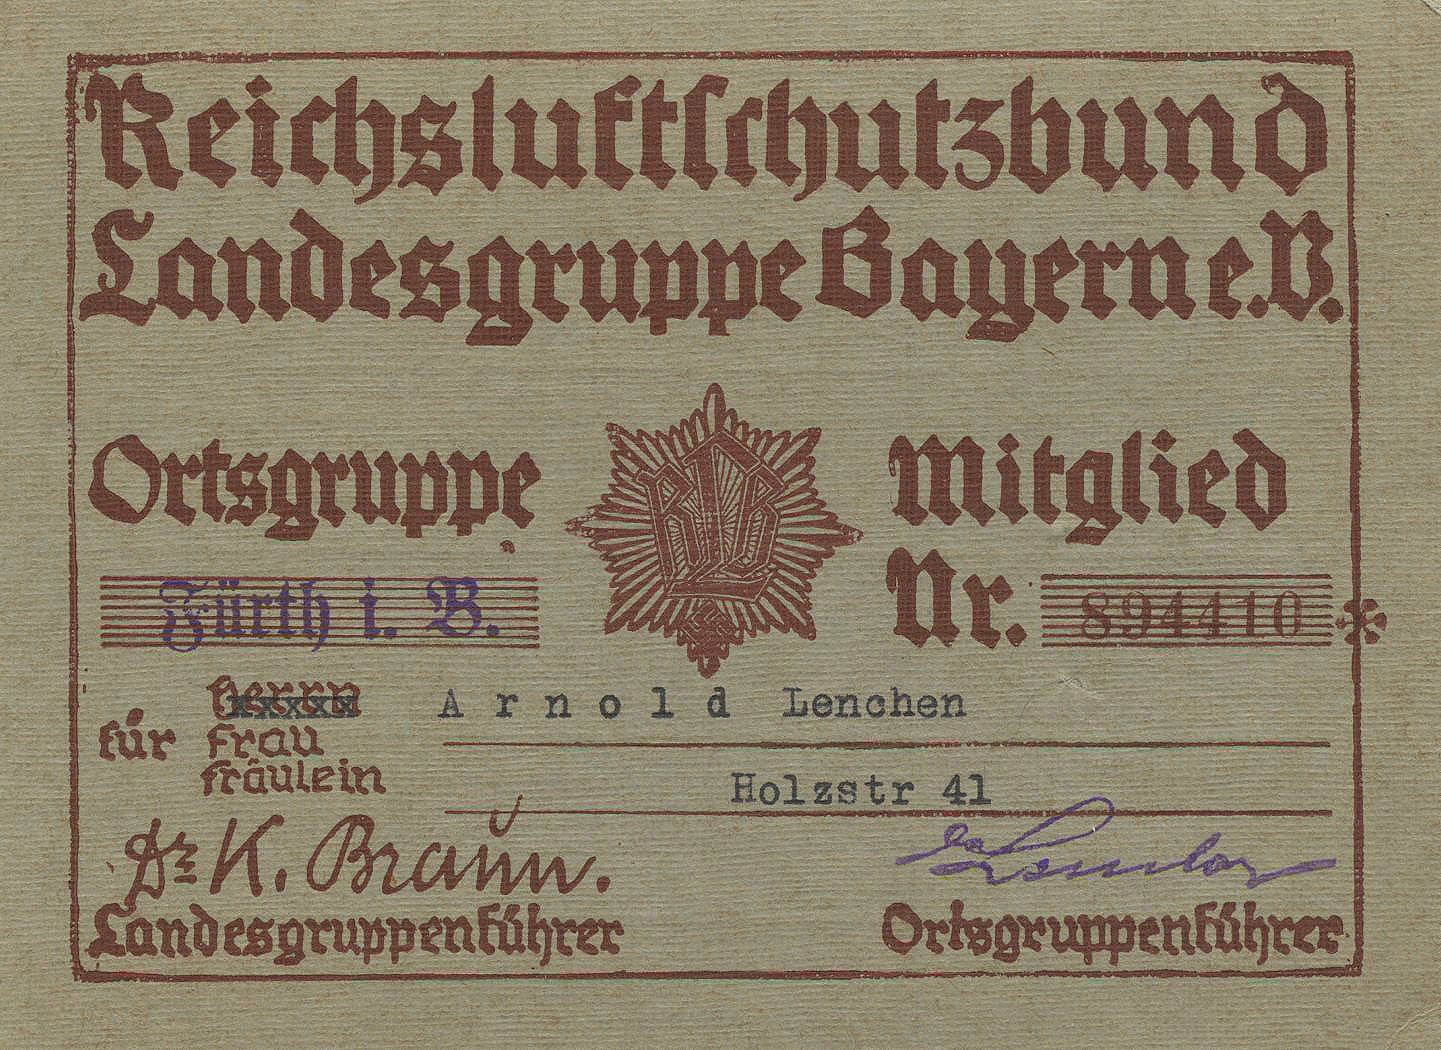 Reichsluftschutzbund
Landesgruppe Bayern e.V.
Ortsgruppe
Fürth i. B.
RLB
Mitglied
Nr. 894410 *
für
Herrn xxxxx
Frau
Fräulein
Arnold Lenchen
Holzstr 41
Dr K. Braun.
Landesgruppenführer
Ortsgruppenführer